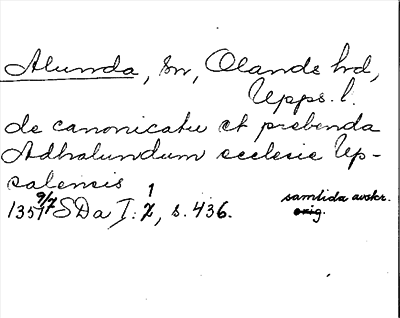 Alunda, sn, Olands hd,
Upps. l.
de canonicatu et prebenda
Adhalundum ecclesie Up-
salensis
1357 9/7 SDa I: 1, s. 436. samtida avskr.
orig.